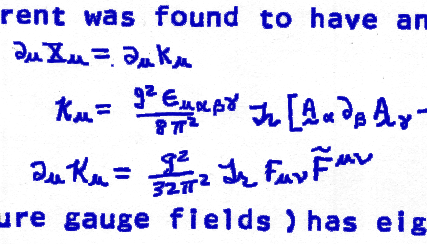 rent was found to have an
∂μ Xμ = ∂μ Kμ
Kμ = g² εμαβγ / 8π² Tr [ Aα ∂β Aγ -
∂μ Kμ = g² / 32π² Tr Fμν F̃μν
ure gauge fields ) has eig